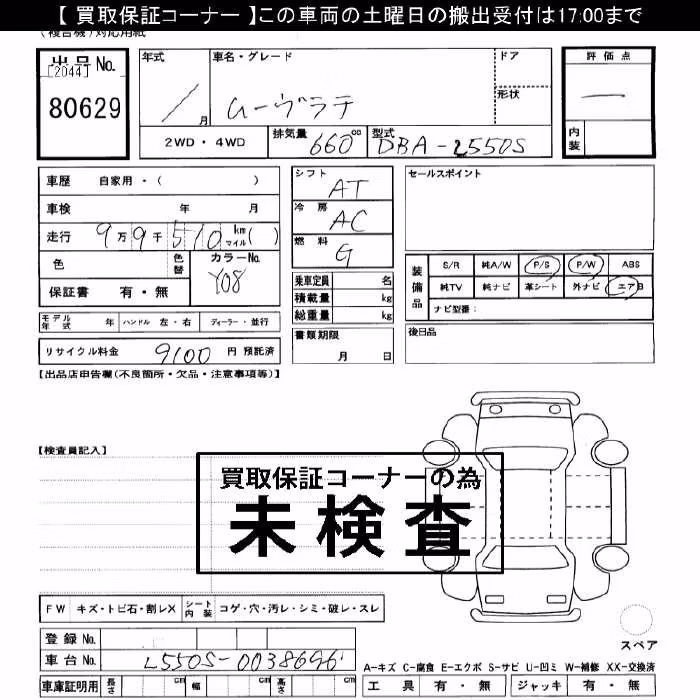 【 買取保証コーナー 】この車両の土曜日の搬出受付は17:00まで
(複合機)対応用紙
出品No.
[2044]
80629
年式
月
車名・グレード
ムーヴラテ
ドア
形状
評価点
内装
2WD・4WD
排気量
660cc
型式
DBA-L550S
車歴 自家用・( )
車検 年 月
走行 9万9千510km マイル( )
色
色替
カラーNo.
Y08
保証書 有・無
シフト
AT
冷房
AC
燃料
G
乗車定員 名
積載量 kg
総重量 kg
セールスポイント
装備品
S/R 純A/W P/S P/W ABS
純TV 純ナビ 革シート 外ナビ エアB
ナビ型番:
モデル年式 年 ハンドル 左・右 ディーラー・並行
書類期限
月 日
後日品
リサイクル料金 9100 円 預託済
【出品店申告欄(不良箇所・欠品・注意事項等)】
【検査員記入】
買取保証コーナーの為
未検査
FW キズ・トビ石・割レX シート内装 コゲ・穴・汚レ・シミ・破レ・スレ
登録No.
車台No. L550S-0038696
スペア
A-キズ C-腐食 E-エクボ S-サビ U-凹ミ W-補修 XX-交換済
車庫証明用 長さ cm 幅 cm 高さ cm
工具 有・無 ジャッキ 有・無